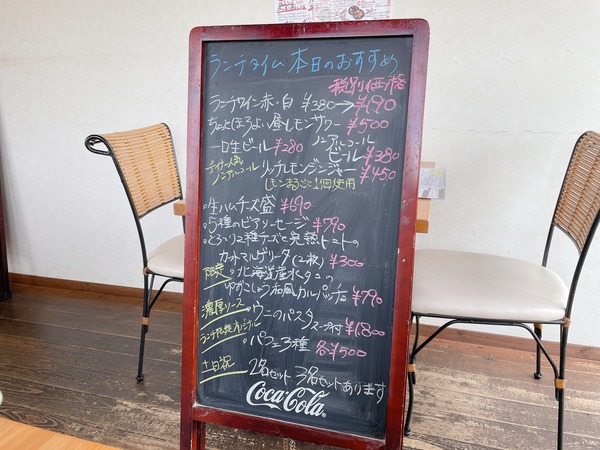 ランチタイム 本日のおすすめ
税別価格
ランチワイン赤・白 ¥380→¥190
ちょっとほろよい昼レモンサワー ¥500
一口生ビール ¥280
ノンアルコールビール ¥380
ノンアルコール リッチレモンジンジャー ¥450
レモンまるごと1個使用
・生ハムチーズ盛 ¥690
・5種のビアソーセージ ¥790
・とろ〜り2種チーズと完熟トマトの
カットマルゲリータ(2枚) ¥300
限定 ・北海道産水タコの
ゆずこしょう和風カルパッチョ ¥790
濃厚ソース ウニのパスタ スープ付 ¥1,800
ランチ限定オリジナル
・パフェ3種 各¥500
土日祝 2名セット 3名セットあります
Coca-Cola